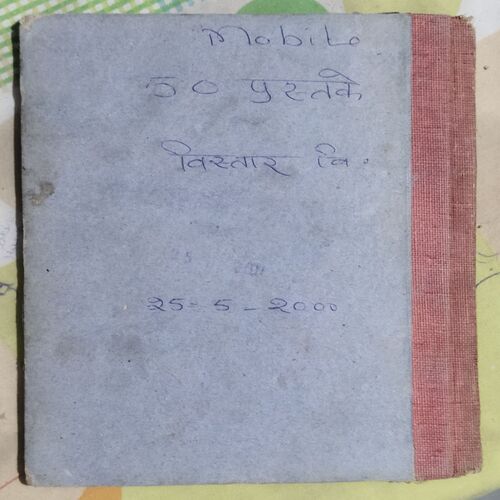 Mobile
50 पुस्तके
विस्तार वि.
25-5-2000